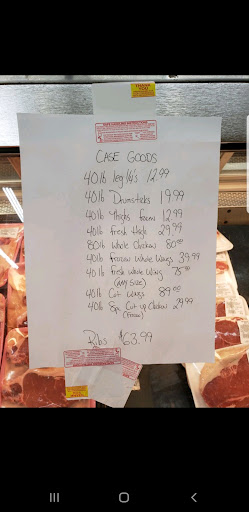 CASE GOODS
40 lb leg 1/4's 12.99
40 lb Drumsticks 19.99
40 lb Thighs frozen 12.99
40 lb fresh thigh 29.99
80 lb whole chickens 80.00
40 lb frozen whole wings 39.99
40 lb fresh whole wings 75.00
(ANY Size)
40 lb Cut wings 89.00
40 lb 8pc Cut up Chicken 29.99
(Frozen)
Ribs $63.99